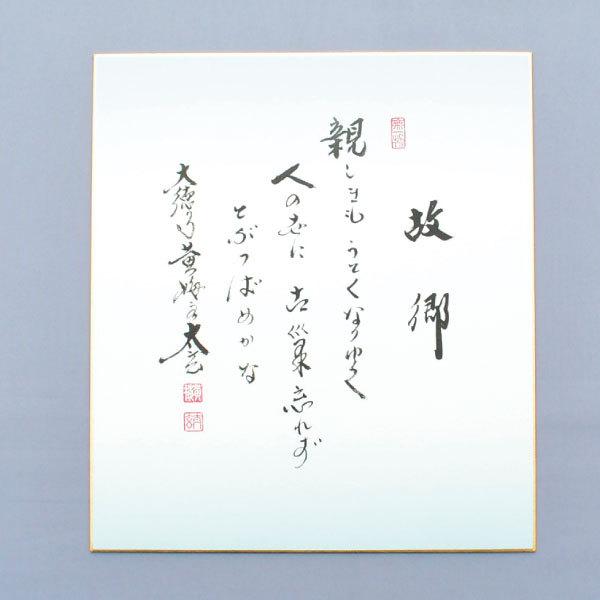 故郷
親しきも うとくなりゆく
人の世に 古巣忘れず
とぶつばめかな
大徳寺黄梅院 太玄